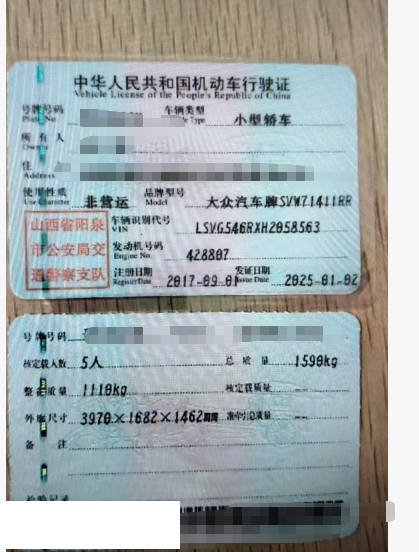 中华人民共和国机动车行驶证
Vehicle License of the People's Republic of China
号牌号码 车辆类型 小型轿车
所有人
住
Address
使用性质 非营运 品牌型号 大众汽车牌SVW71411RR
Use Character Model
山西省阳泉 车辆识别代号 LSVG546RXH2058563
VIN
市公安局交 发动机号码 428807
Engine No.
道警察支队 注册日期 2017-09-01 发证日期 2025-01-02
Register Date Issue Date
号牌号码
核定载人数 5人 总质量 1590kg
整备质量 1110kg 核定载质量 --
外廓尺寸 3970×1682×1462mm 准牵引总质量 --
备注
检验记录